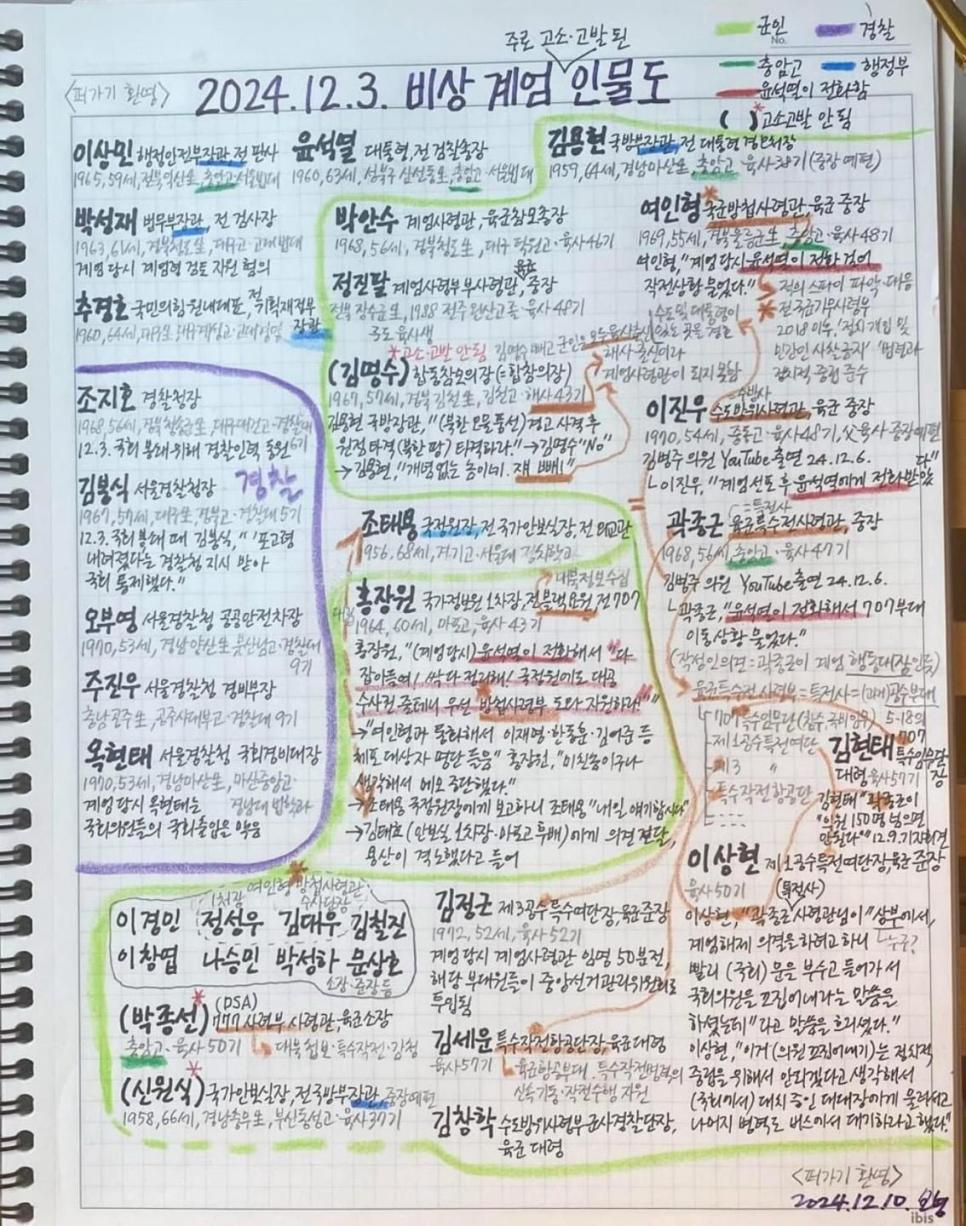 주로 고소·고발 된
군인
경찰
충암고
행정부
윤석열이 전화함
( )* 고소고발 안 됨
<퍼가기 환영>
2024.12.3. 비상 계엄 인물도
이상민 행정안전부장관, 전 판사
1965, 59세, 전북익산生, 충암고·서울법대
윤석열 대통령, 전 검찰총장
1960, 63세, 성북구 삼선동生, 충암고·서울법대
김용현 국방부장관, 전 대통령 경호처장
1959, 64세, 경남마산生, 충암고·육사38기 (중장 예편)
박성재 법무부장관, 전 검사장
1963, 61세, 경북청도生, 대구고·고대법대
계엄 당시 계엄령 검토 지원 혐의
추경호 국민의힘 원내대표, 전 기획재정부
장관
1960, 64세, 대구生, 대구계성고·고대경영
조지호 경찰청장
1968, 56세, 경북청송生, 대구대건고·경찰대
6기
12.3. 국회 봉쇄 위해 경찰인력 동원
김봉식 서울경찰청장
경찰
1967, 57세, 대구生, 경북고·경찰대 5기
12.3. 국회 봉쇄 때 김봉식, "포고령
내려졌다는 경찰청 지시 받아
국회 통제했다."
오부영 서울경찰청 공공안전차장
1970, 53세, 경남양산生, 부산남고·경찰대
9기
주진우 서울경찰청 경비부장
충남공주生, 공주사대부고·경찰대 9기
목현태 서울경찰청 국회경비대장
1970, 53세, 경남마산生, 마산중앙고·
경남대 법학과
계엄 당시 목현태는
국회의원들의 국회출입은 막음
박안수 계엄사령관, 육군참모총장
1968, 56세, 경북청도生, 대구 덕원고·육사46기
정진팔 계엄사령부부사령관, 육군 중장
전북 장수군生, 1988 전주 완산고 졸·육사48기
*고소·고발 안 됨 김명수 빼고 군인은 모두 육사출신
(김명수) 합동참모의장 (=합참의장)
1967, 57세, 경북 김천生, 김천고·해사43기
해사 출신이라
계엄사령관이 되지 못함
김용현 국방장관, "(북한 오물풍선) 경고 사격 후
원점 타격(북한 땅) 타격하라." → 김명수 "No"
→ 김용현, "개념없는 놈이네. 쟤 빼!"
여인형* 국군방첩사령관, 육군 중장
1969, 55세, 경북울릉군生, 충암고·육사48기
여인형, "계엄 당시 윤석열이 전화 걸어
작전상황 물었다."
적의 스파이 파악·대응
* 전 국군기무사령부
2018 이후, '정치 개입 및
민간인 사찰 금지' '법령과
정치적 중립 준수
이진우 수도방위사령관, 육군 중장
1970, 54세, 중동고·육사48기, 父육사·중장예편
김병주 의원 YouTube 출연 24.12.6.
└이진우, "계엄선포 후 윤석열에게 전화받았
다"
곽종근 육군특수전사령관, 중장
(=특전사
1968, 56세, 충암고·육사47기
김병주 의원 YouTube 출연 24.12.6.
└곽종근, "윤석열이 전화해서 707부대
이동상황 물었다."
(작성인의견 = 곽종근이 계엄 행동대장인듯)
육군특수전 사령부 = 특전사 = (과거)공수부대
707 특수임무단
제1공수특전여단
제3 〃
특수작전항공단
김현태 707
특수임무단장
대령 육사57기
김현태 "곽종근이
'의원 150명 넘으면
안된다'" 12.9. 기자회견
조태용 국정원장, 전 국가안보실장, 전 외교관
1956, 68세, 경기고·서울대 정치학과
대북정보수집
홍장원 국가정보원 1차장, 전 블랙요원, 전707
1964, 60세, 마포고, 육사 43기
홍장원, "(계엄당시) 윤석열이 전화해서 "다
잡아들여! 싹 다 정리해! 국정원에도 대공
수사권 줄테니 우선 방첩사령부 도와 지원하라"
"여인형과 통화해서 이재명·한동훈·김어준 등
체포 대상자 명단 들음" 홍장원, "미친놈이구나
생각해서 메모 중단했다."
→ 조태용 국정원장에게 보고하니 조태용 "내일 얘기합시다"
→ 김태효 (안보실 1차장·마포고 후배)에게 의견 전달,
용산이 격노했다고 들어
여인형 방첩사령관
1처장
수사단장
이경민 정성우 김대우 김철진
이창엽 나승민 박성하 문상호
소장·준장 등
(박종선)* (DSA) 777사령부 사령관, 육군소장
충암고·육사50기 → 대북첩보·특수작전·감청
(신원식)* 국가안보실장, 전 국방부장관, 중장예편
1958, 66세, 경남충무生, 부산동성고·육사37기
김정근 제3공수특수여단장, 육군준장
1972, 52세, 육사52기
계엄 당시 계엄사령관 임명 50분전,
해당 부대원들이 중앙선거관리위원회로
투입됨
김세운 특수작전항공단장, 육군대령
육사57기 └ 육군항공부대, 특수작전병력의
신속기동·작전수행 지원
김창학 수도방위사령부군사경찰단장,
육군 대령
이상현 제1공수특전여단장, 육군 준장
육사50기 (특전사)
이상현, "곽종근 사령관님이 "상부에서,
└누구?
계엄해제 의결을 하려고 하니
빨리 (국회) 문을 부수고 들어가서
국회의원을 끄집어내라는 말씀을
하셨는데"라고 말씀을 흐리셨다."
이상현, "이거 (의원 끄집어내기)는 정치적
중립을 위해서 안되겠다고 생각해서
(국회에서) 대치 중인 대대장에게 물러서고
나머지 병력도 버스에서 대기하라고 했다."
<퍼가기 환영>
2024.12.10.
ibis